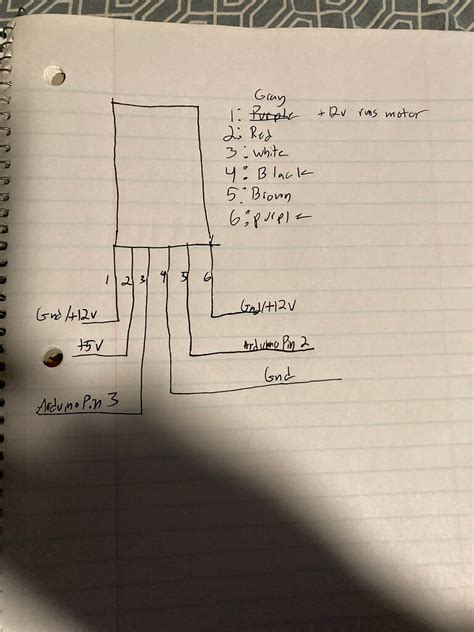 Gray
1: Purple +12v runs motor
2: Red
3: white
4: Black
5: Brown
6: purple
1 2 3 4 5 6
Gnd/+12v
Gnd/+12v
+5v
Arduino Pin 2
Gnd
Arduino Pin 3